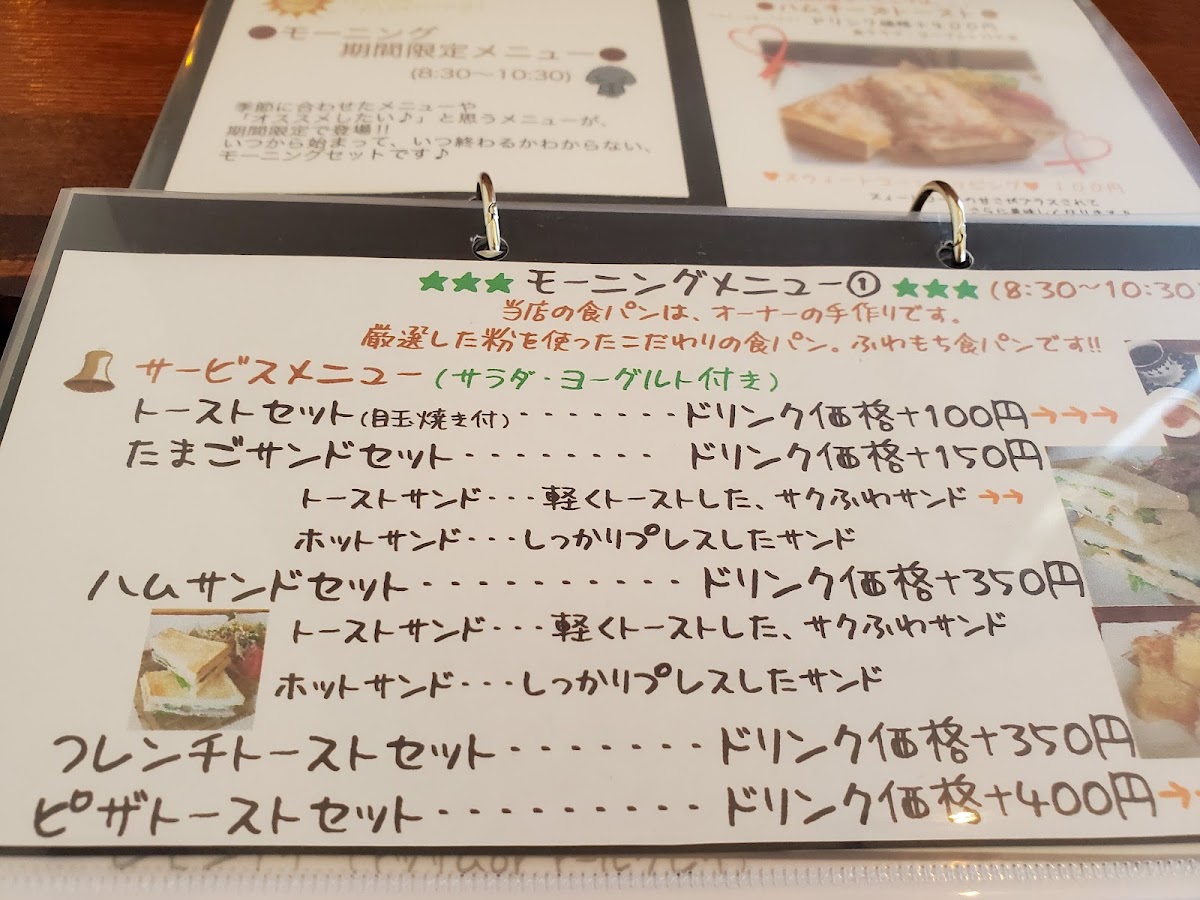 ●モーニング
期間限定メニュー●
(8:30〜10:30)
季節に合わせたメニューや
「オススメしたい♪」と思うメニューが、
期間限定で登場!!
いつから始まって、いつ終わるかわからない、
モーニングセットです♪
ドリンク価格+400円
♥スウィートコーントッピング♥ 100円
★★★ モーニングメニュー① ★★★ (8:30〜10:30)
当店の食パンは、オーナーの手作りです。
厳選した粉を使ったこだわりの食パン。ふわもち食パンです!!
サービスメニュー(サラダ・ヨーグルト付き)
トーストセット(目玉焼き付)········ドリンク価格+100円→→→
たまごサンドセット········ ドリンク価格+150円
トーストサンド···軽くトーストした、サクふわサンド→→
ホットサンド···しっかりプレスしたサンド
ハムサンドセット···········ドリンク価格+350円
トーストサンド···軽くトーストした、サクふわサンド
ホットサンド···しっかりプレスしたサンド
フレンチトーストセット········ドリンク価格+350円
ピザトーストセット··········ドリンク価格+400円→